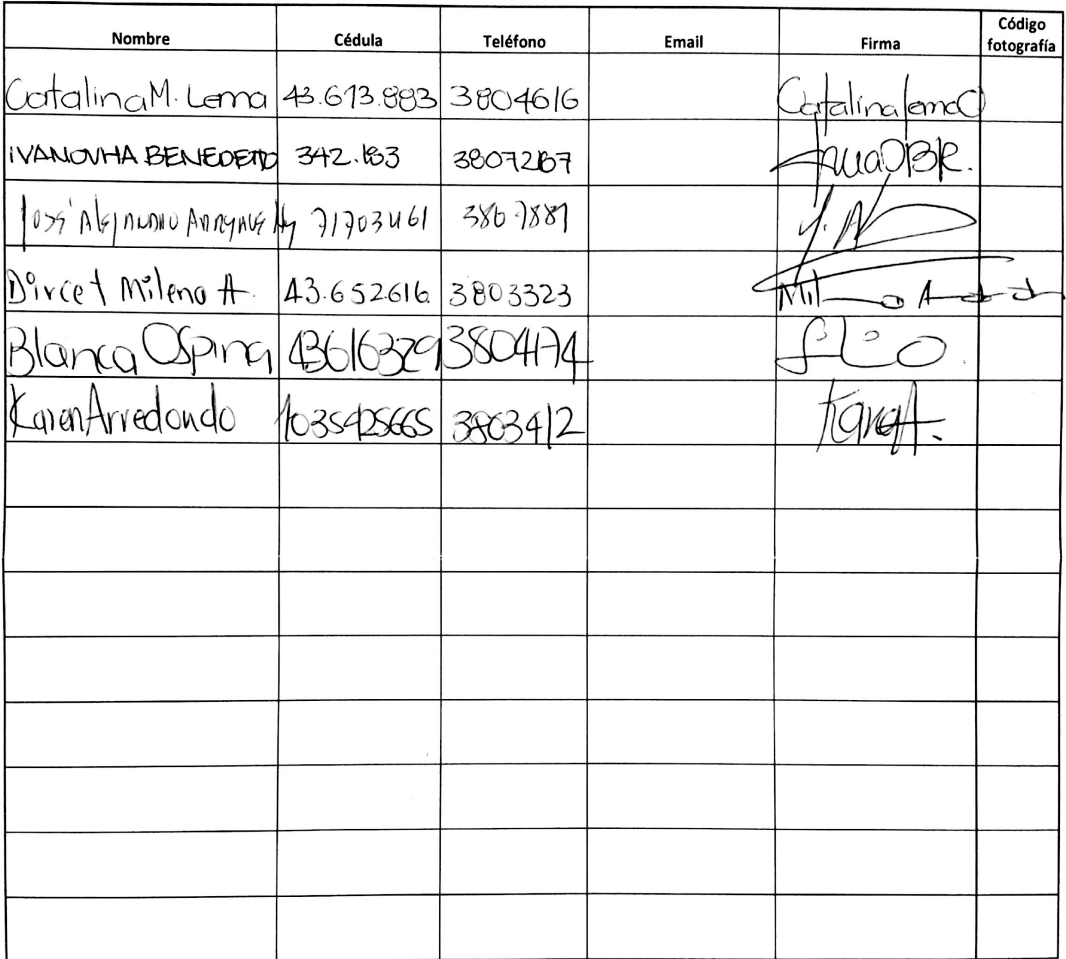 Nombre Cédula Teléfono Email Firma Código fotografía
Catalina M. Lema 43.613.883 3804616 Catalina Lema O
IVANOVHA BENEDETTO 342.183 3807267
José Alejandro 71703461 3807887
Dircet Milena A. 43.652616 3803323
Blanca Ospina 43616329 3804174
Karen Arredondo 1035425665 3803412 Karen A.